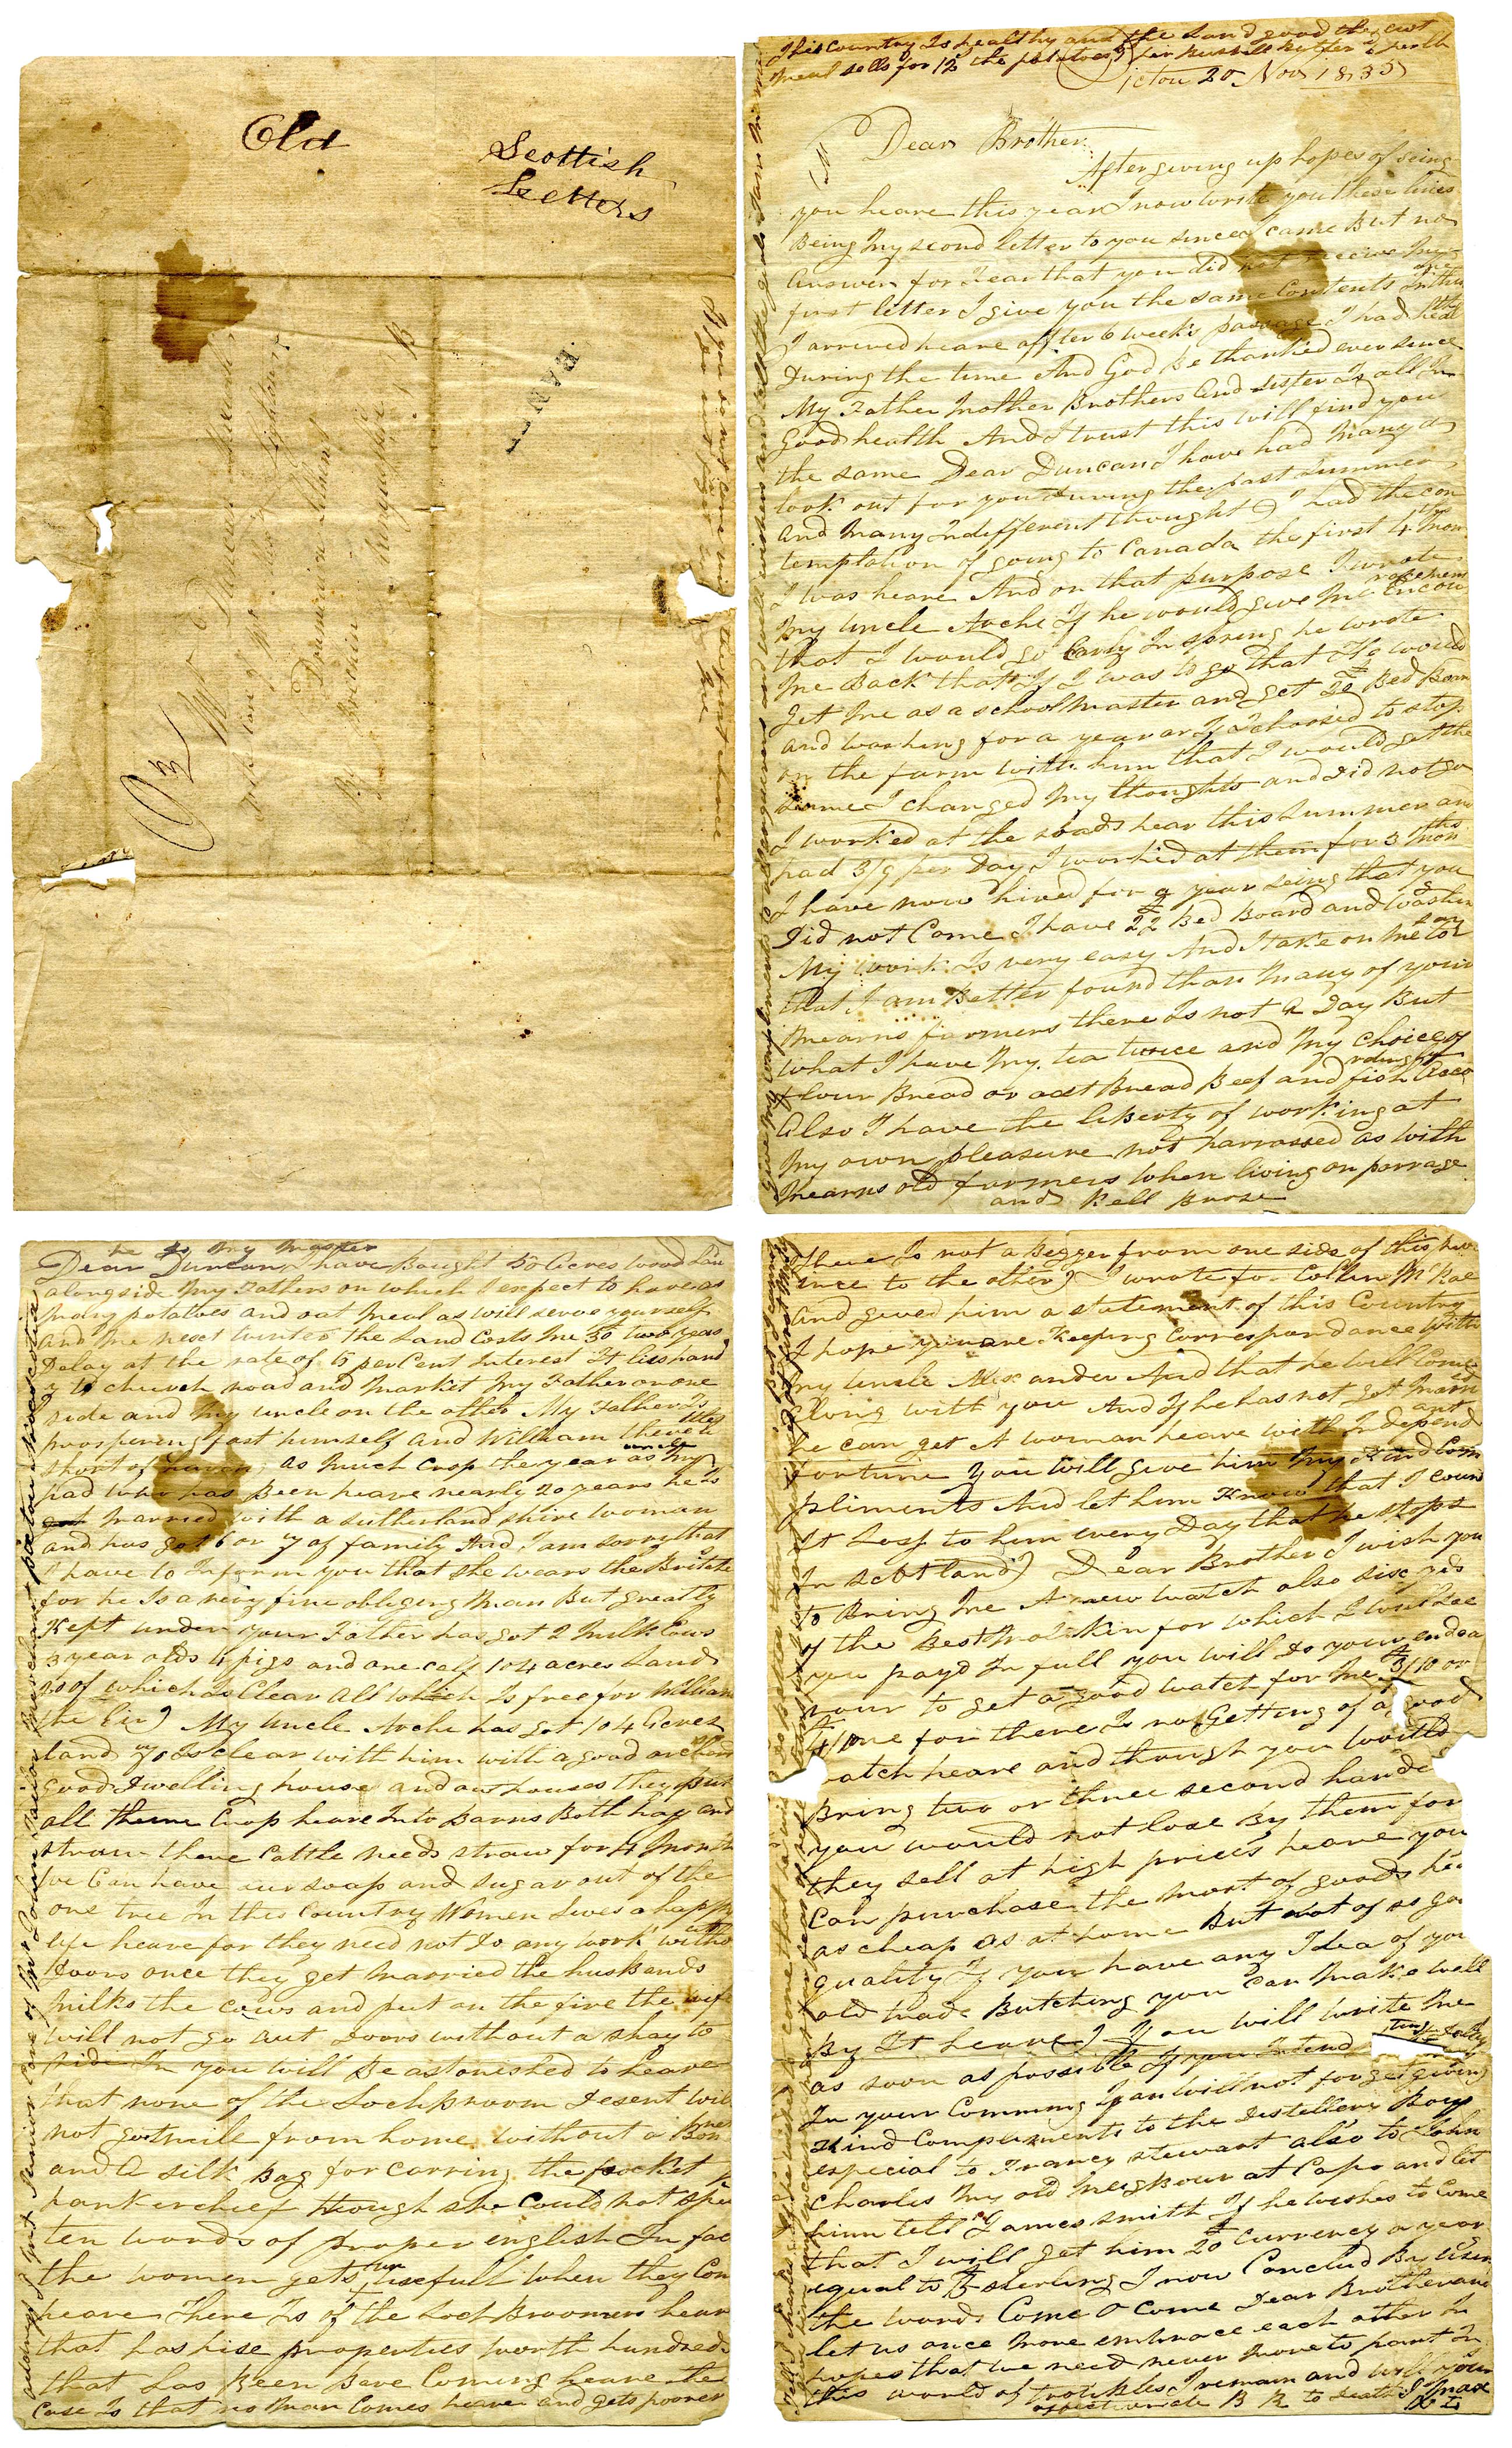 Old
Scottish
Letters
Mr Duncan
Distillery
By Brichin
If you do not come
PAN
This Country Is healthy and the Land good the cwt
meal sells for 12 the potatoes per Bushell Butter per lb
Pictou 20 Nov 1835
Dear Brother
After giving up hopes of seing
you heare this year I now write you these lines
Being My second letter to you since I came But no
Answer for fear that you did not receive My
first letter I give you the same Contents In this one
I arrived heare after 6 weeks passage I had health
During the time And God be thanked ever since
My Father Mother Brothers and sister Is all In
good health And I trust this will find you
the same Dear Duncan I have had Many a
look out for you During the past summer
and Many Indifferent thought I had the con
templation of going to Canada the first 4 Mon ths
I was heare And on that purpose I wrote
My uncle Arche If he would give Me Encou ragement
that I would go Early In spring he wrote
Me Back that If I was to go that He would
Get Me as a schoolMaster and get 20 £ Bed Board
and washing for a year or If I choosed to stop
on the farm with him that I would get the
same I changed My thoughts and did not go
I worked at the roads hear this summer and
had 3/9 per Day I worked at them for 3 Mon ths
I have now hired for a year seing that you
Did not Come I have 22 £ Bed Board and washin g
My work Is very easy And I take on Me to say
that I am Better found than Many of your
Mearns farmers there Is not a Day But
what I have My tea twice and My choice of
flour Bread or oat Bread Beef and fish Acco rdingly
Also I have the liberty of working at
My own pleasure not harrassed as with
Mearns old farmers when living on porrage
and Kell Brose
Give my compliments to all enquirers and well wishers and
to My Master
Dear Duncan I have Bought 50 Acres wood Lan
alongside My Fathers on which I expect to have as
Many potatoes and oat Meal as will serve yourself
and Me next winter the Land Costs Me 50 £ two years
Delay at the rate of 6 per Cent Interest It lies hand
y to church road and Market My Father on one
side and My uncle on the other My Father Is
prospering fast himself and William there is little
short of as Much Crop the year as My uncle
had who has Been heare nearly 20 years he is
married with a sutherland shire woman
and has got 6 or 7 of family And I am sorry that
I have to Inform you that she wears the Britchs
for he Is a very fine obliging Man But greatly
Kept under your Father has got 2 Milk Cows
3 year olds 4 pigs and one calf 104 acres Land
20 of which Is Clear All which Is free for William
the Eir My uncle Arche has got 104 Acres
land 70 Is clear with him with a good orchard
good Dwelling house and out houses they put
all there Crop heare Into Barns Both hay and
straw there Cattle needs straw for 4 Months
we Can have our soap and sugar out of the
one tree In this Country Women Lives a happy
life heare for they need not Do any work witho ut
Doors once they get Married the husbands
Milks the cows and put on the fire the wife
will not go out Doors without a shay to
ride In you will Be astonished to heare
that none of the Lochbroom Desent will
not go 1 mile from home without a Bonnet
and A silk Bag for Carring the pocket
hankerchief though she Could not speak
ten words of proper english In fact
the women gets usefull when they Com
heare There Is of the Loch Broomers hear
that has hise properties worth hundreds
that has Been Bare Coming heare the
Case Is that no Man Comes heare and gets poorer
Mr John Tailor Merchant pictou Nova scotia
There Is not a Begger from one side of this prov
ince to the other I wrote for Collin McRae
and gived him a statement of this Country
I hope you are Keeping Correspondance with
My uncle Alexander And that he will Come
Along with you And If he has not got Marri ed
he can get A woman heare with Independ ant
fortune you will give him My Kind Com
pliments And let him Know that I coun
It Loss to him every Day that he stops
In scotland Dear Brother I wish you
to Bring Me A new watch also six yds
of the Best Molskin for which I will see
you payd In full you will Do your endea
vour to get a good watch for Me £ 3/10 or
£ 4/10 one for there Is no Getting of a good
watch heare and though you would
Bring two or three second hande
you would not lose By them for
they sell at high prices heare you
Can purchase the Most of goods hea
as cheap as at home But not of so go
quality If you have any Idea of you
old trade Butching you Can Make well
By It heare You will write Me
as soon as possible If you Intend
In your Comming you will not forget giving
Kind Compliments to the Distellery Boys
especial to Francy stewart also to John
Charles My old Neighbour at Capo and let
him tell James smith If he wishes to Come
that I will get him 20 £ Currency a year
equal to sterling I now Conclud By Using
the words Come O Come Dear Brother and
let us once More embrace each other In
hopes that we need never More to part In
this world of troubles I remain and will your
affectionate B R to Death